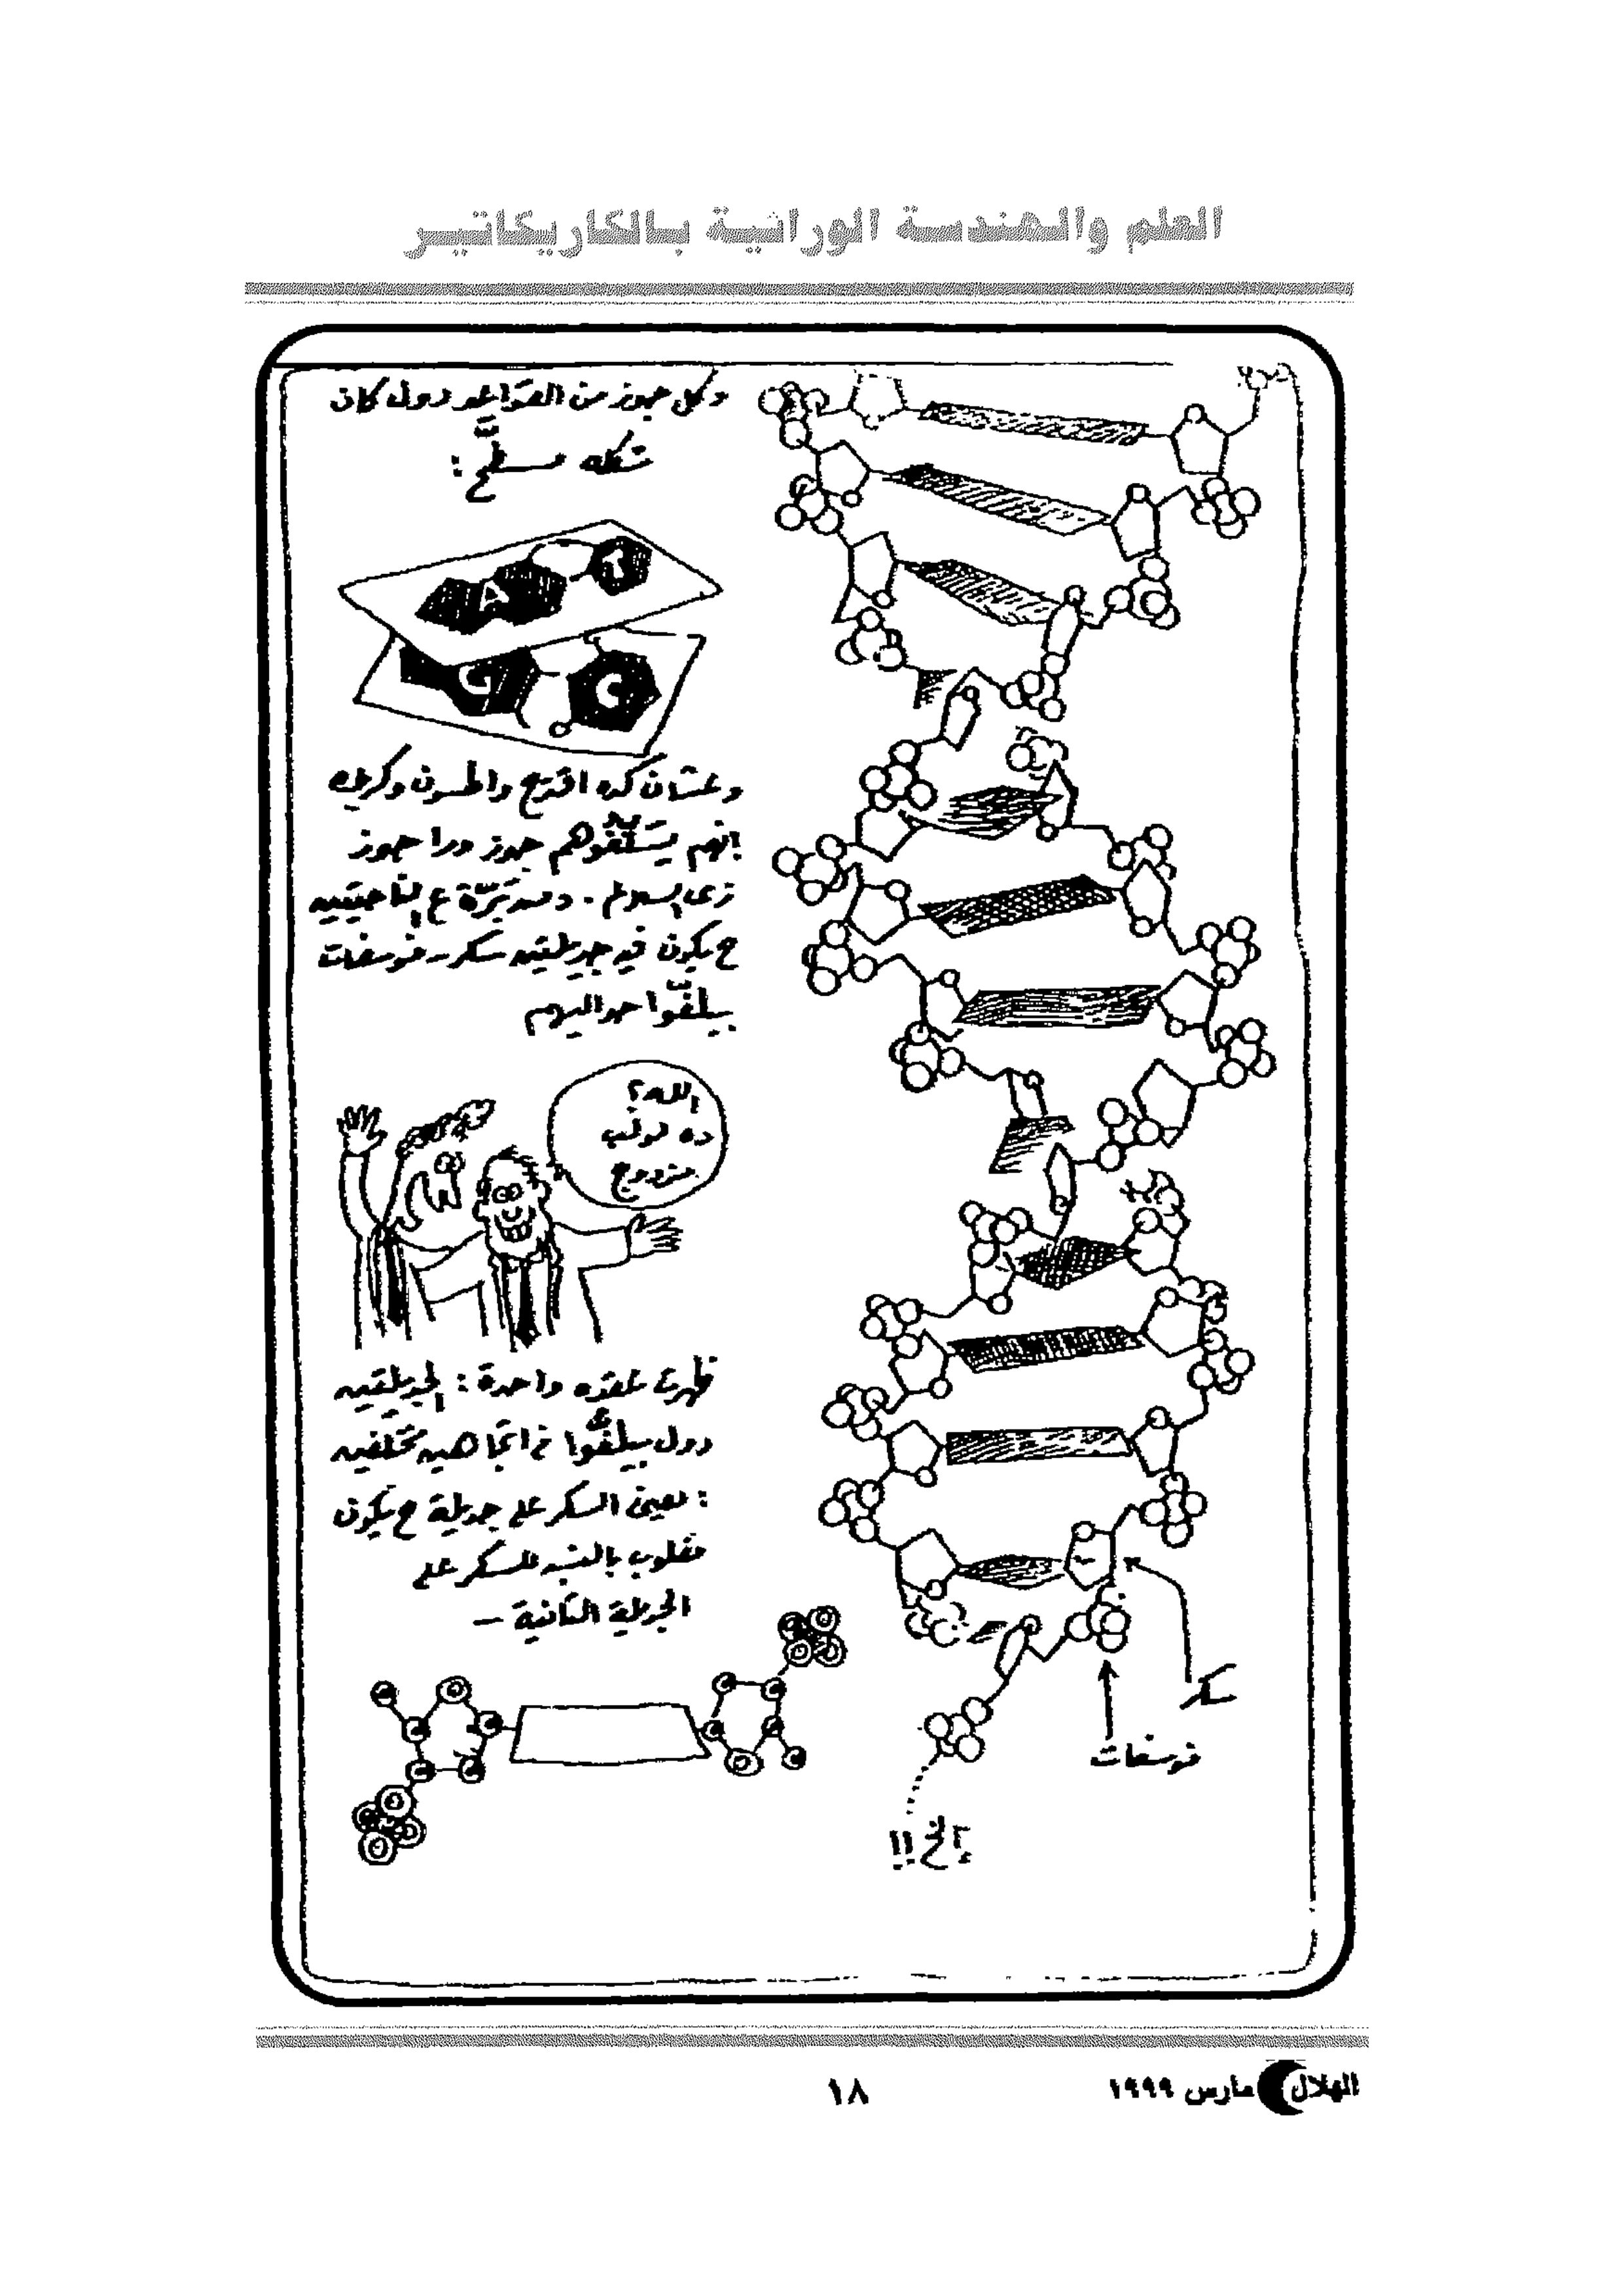 العلم والهندسة الوراثية بالكاريكاتير
وكل جوز من القواعد دول كان
شكله مسطح :
A T
G C
وعشان كده اقترح واطسون وكريك
انهم يستفوهم جوز ورا جوز
زى السلالم . ومن برّة ع الناحيتين
ح يكون فيه جديلتين سكر - فوسفات
بيلفّوا حواليهم
الله؟
ده لولب
مزدوج
ظهرت عقده واحدة : الجديلتين
دول بيلفّوا فى اتجاهين مختلفين
: يعنى السكر على جديلة ح يكون
مقلوب بالنسبه للسكر على
الجديلة التانية -
سكر
فوسفات
إلخ !!
الهلال مارس ١٩٩٩
١٨